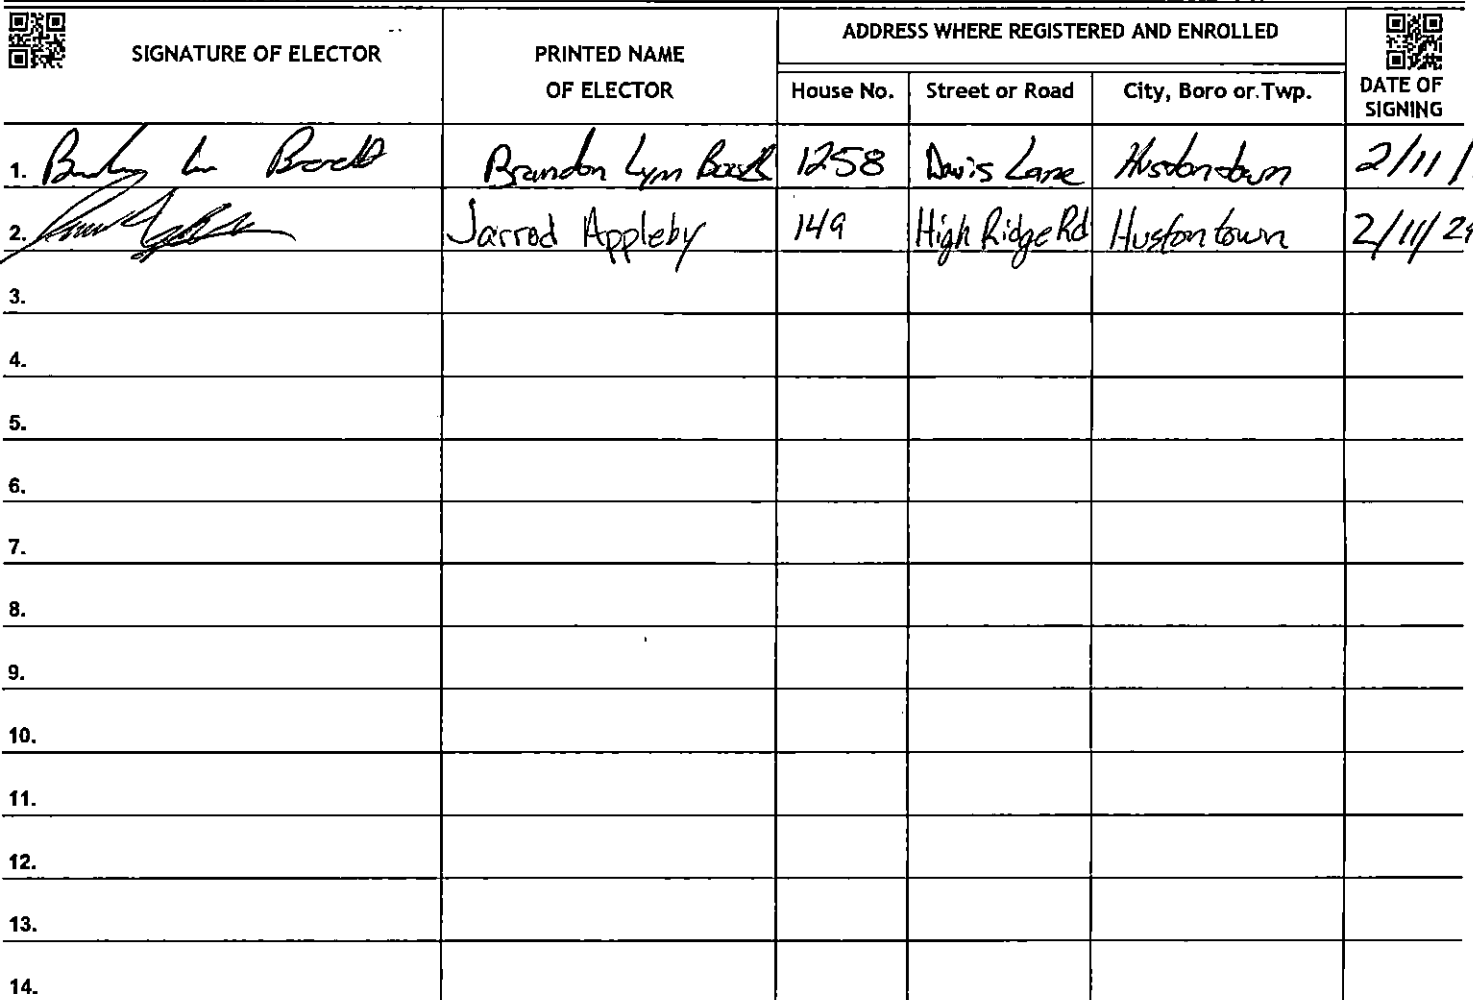 SIGNATURE OF ELECTOR
PRINTED NAME
OF ELECTOR
ADDRESS WHERE REGISTERED AND ENROLLED
House No.
Street or Road
City, Boro or Twp.
DATE OF
SIGNING
1. Brandon Lynn 1258 Davis Lane Hustontown 2/11/
2. Jarrod Appleby 149 High Ridge Rd Hustontown 2/11/24
3.
4.
5.
6.
7.
8.
9.
10.
11.
12.
13.
14.